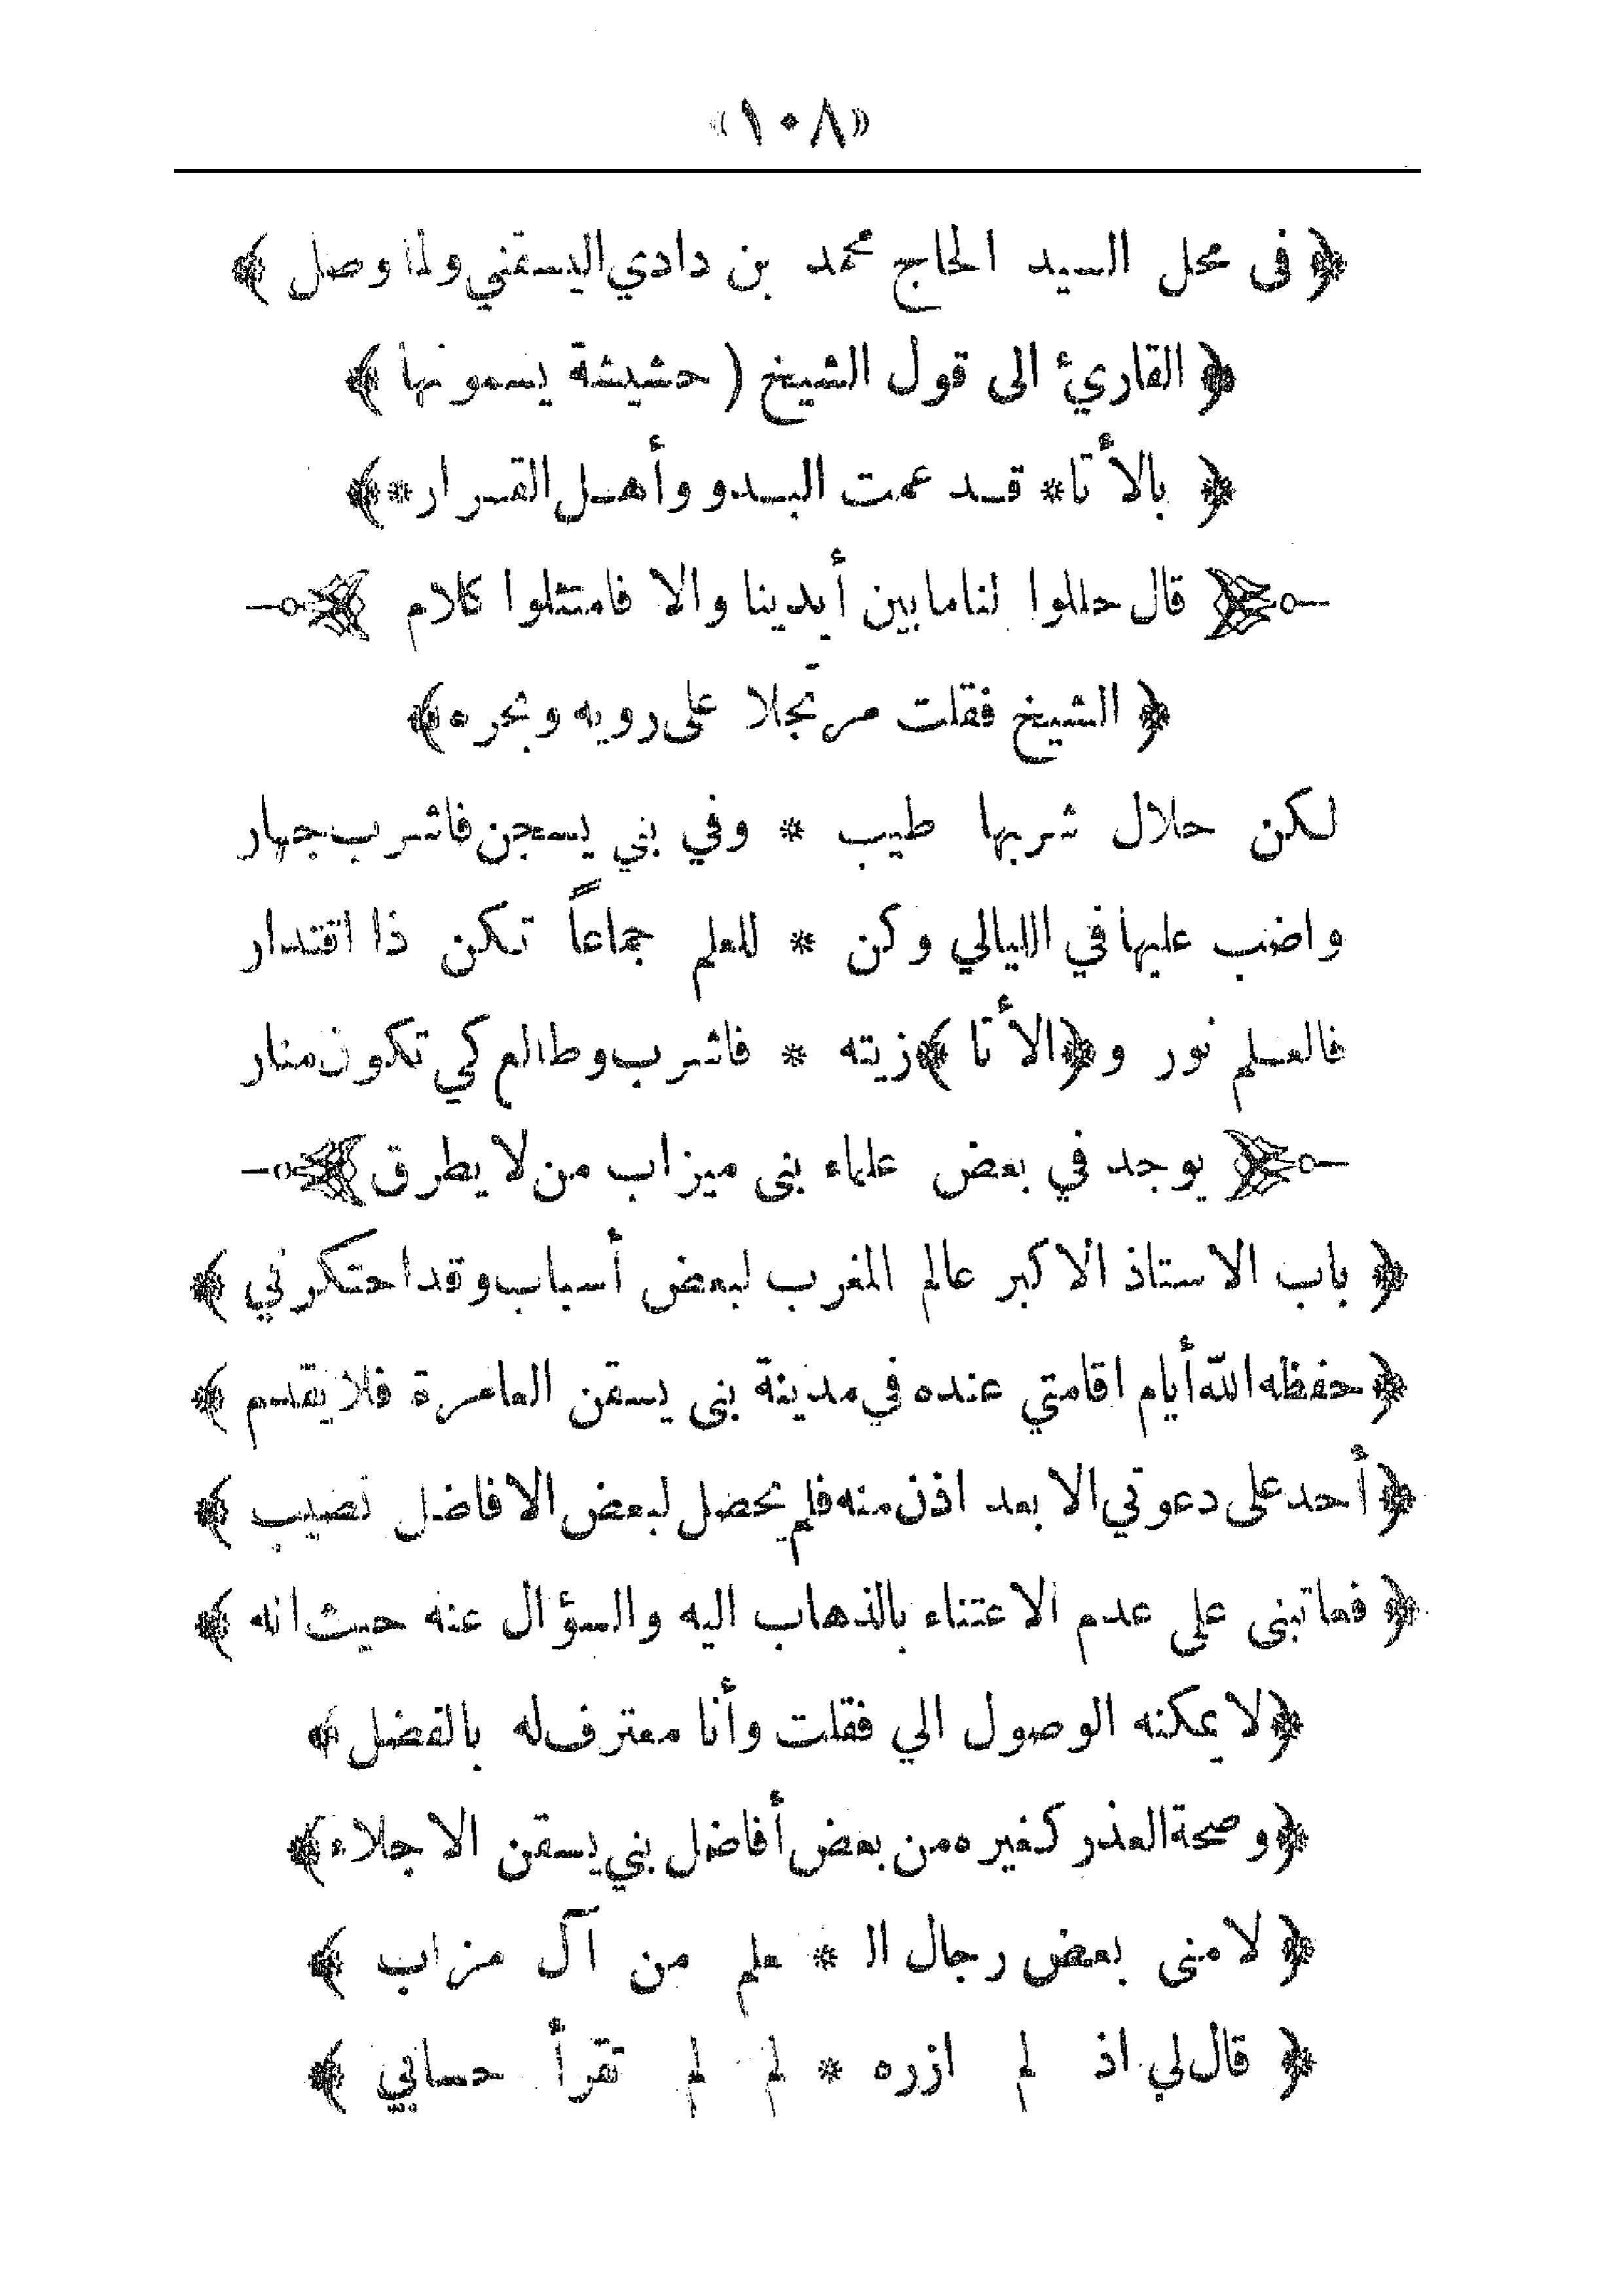 «١٠٨»
﴿ فى محل السيد الحاج محمد بن دادي اليسقني ولما وصل ﴾
﴿ القاريء الى قول الشيخ ( حشيشة يسمونها ﴾
﴿ بالأتا* قد عمت البدو وأهل القرار* ﴾
﴿ قال حللوا لنا مابين أيدينا والا فامتثلوا كلام ﴾
﴿ الشيخ فقلت مرتجلا على رويه وبحره ﴾
لكن حلال شربها طيب * وفي بني يسجن فاشرب جهار
واضب عليها في الليالي وكن * للعلم جماعاً تكن ذا اقتدار
فالعلم نور و﴿الأتا﴾ زيته * فاشرب وطالع كي تكون منار
﴿ يوجد في بعض علماء بنى ميزاب من لا يطرق ﴾
﴿ باب الاستاذ الاكبر عالم المغرب لبعض أسباب وقد احتكرني ﴾
﴿ حفظه الله أيام اقامتي عنده في مدينة بنى يسقن العامرة فلا يقدم ﴾
﴿ أحد على دعوتي الا بعد اذن منه فلم يحصل لبعض الافاضل نصيب ﴾
﴿ فعاتبنى على عدم الاعتناء بالذهاب اليه والسؤال عنه حيث انه ﴾
﴿ لا يمكنه الوصول الي فقلت وأنا معترف له بالفضل ﴾
﴿ وصحة العذر كغيره من بعض أفاضل بني يسقن الاجلاء ﴾
﴿ لامنى بعض رجال الـ * ـعلم من آل مزاب ﴾
﴿ قال لي اذ لم ازره * لم لم تقرأ حسابي ﴾